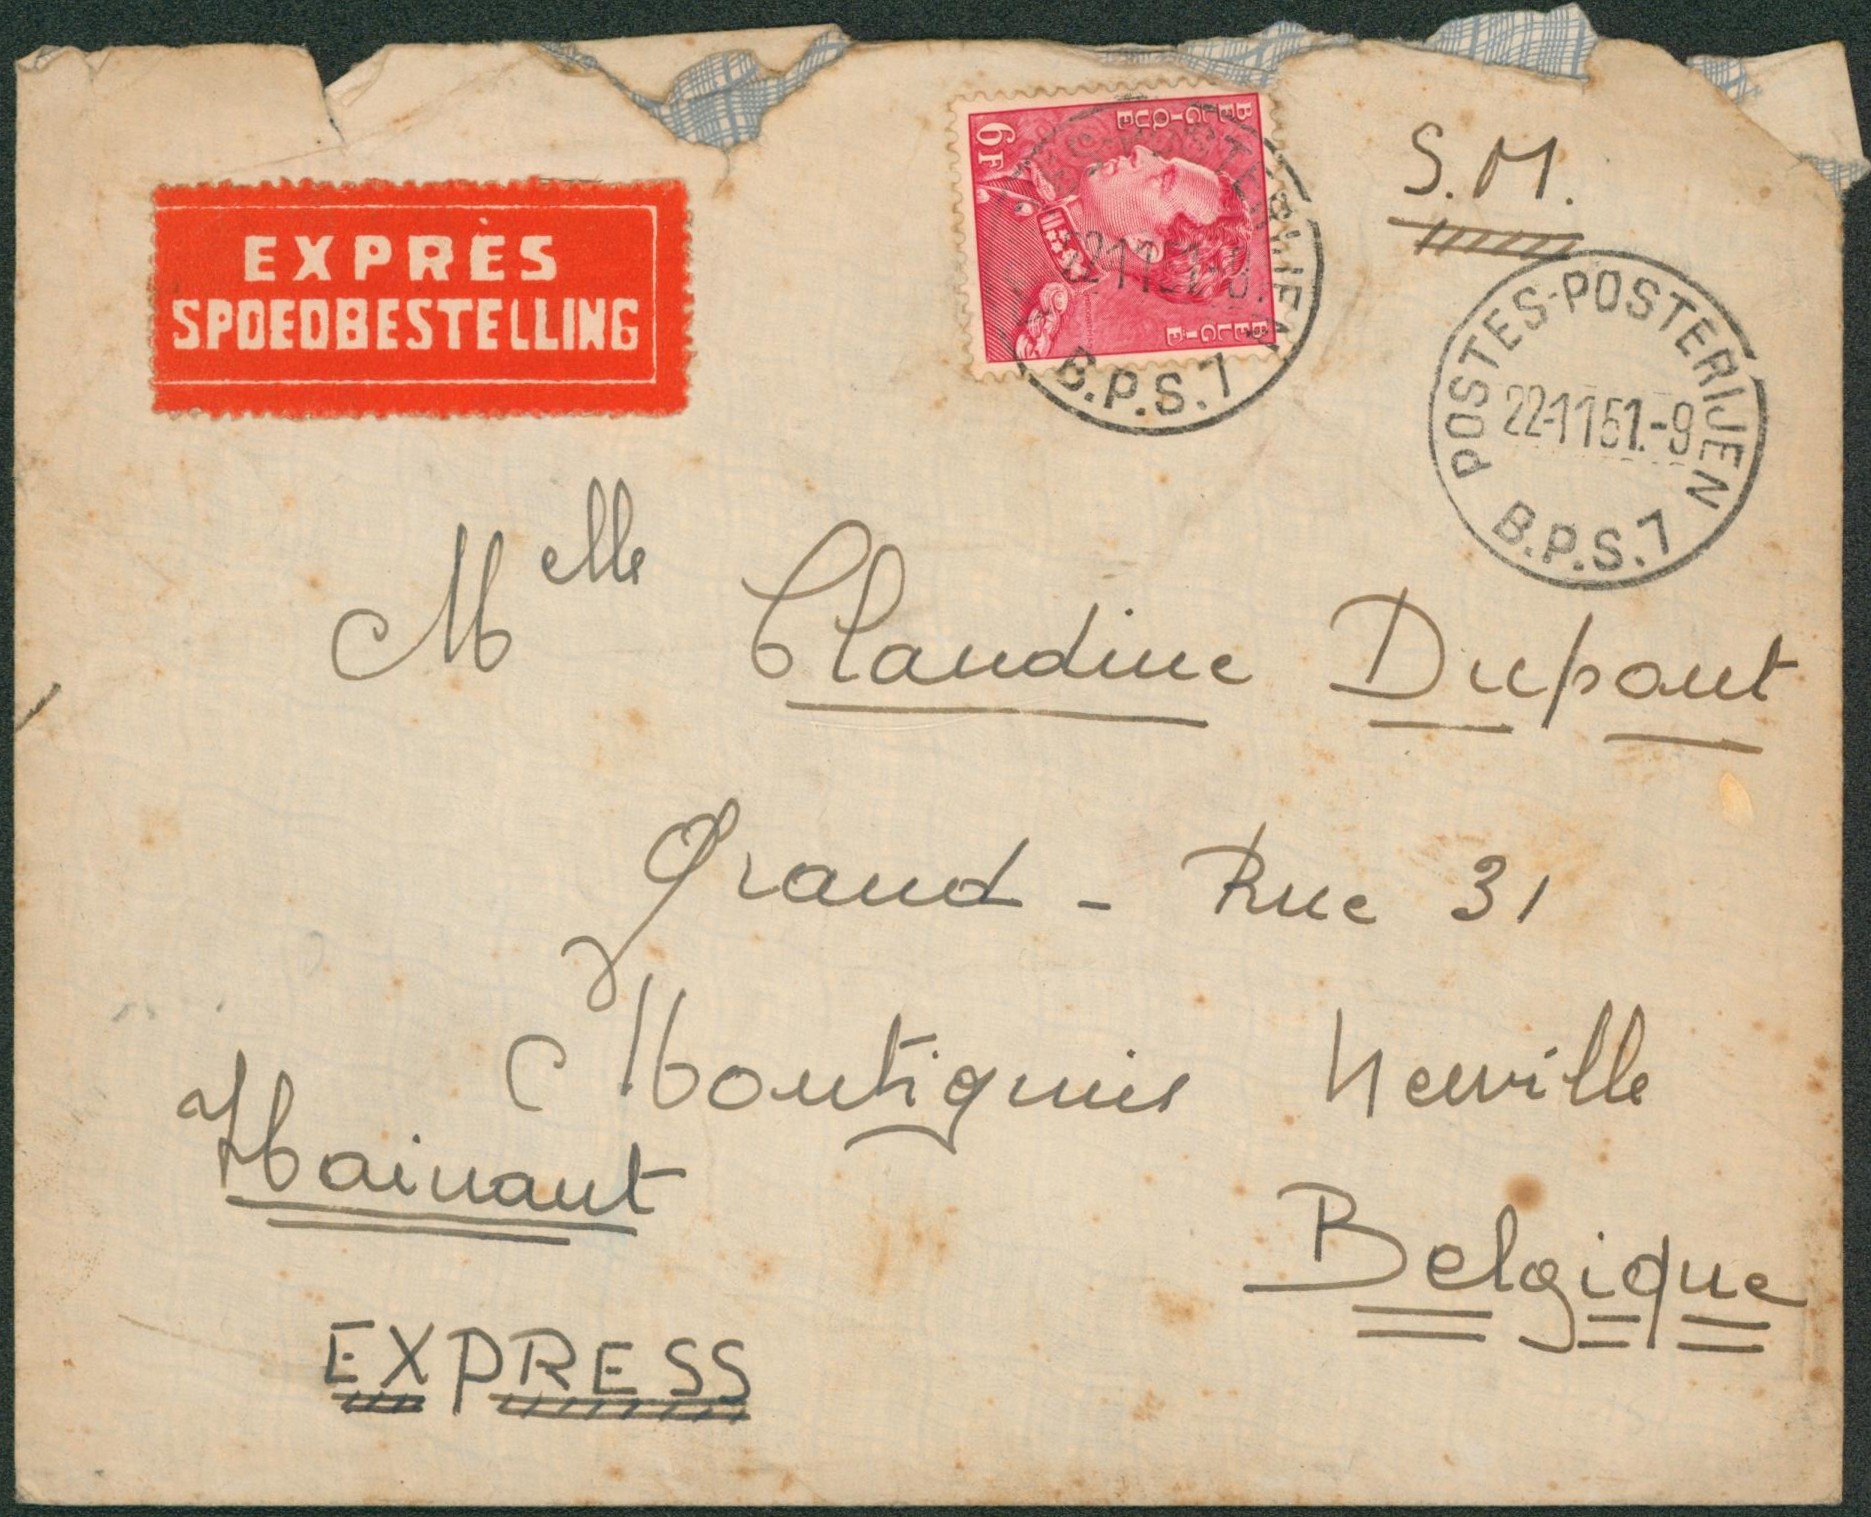 EXPRÈS
SPOEDBESTELLING
BELGIQUE
BELGIE
6F
B.P.S.7
S.M.
POSTES-POSTERIJEN
22-11 51.-9
B.P.S.7
Melle Claudine Dupont
Grand - Rue 31
Montignies Neuville
Hainaut
Belgique
EXPRESS